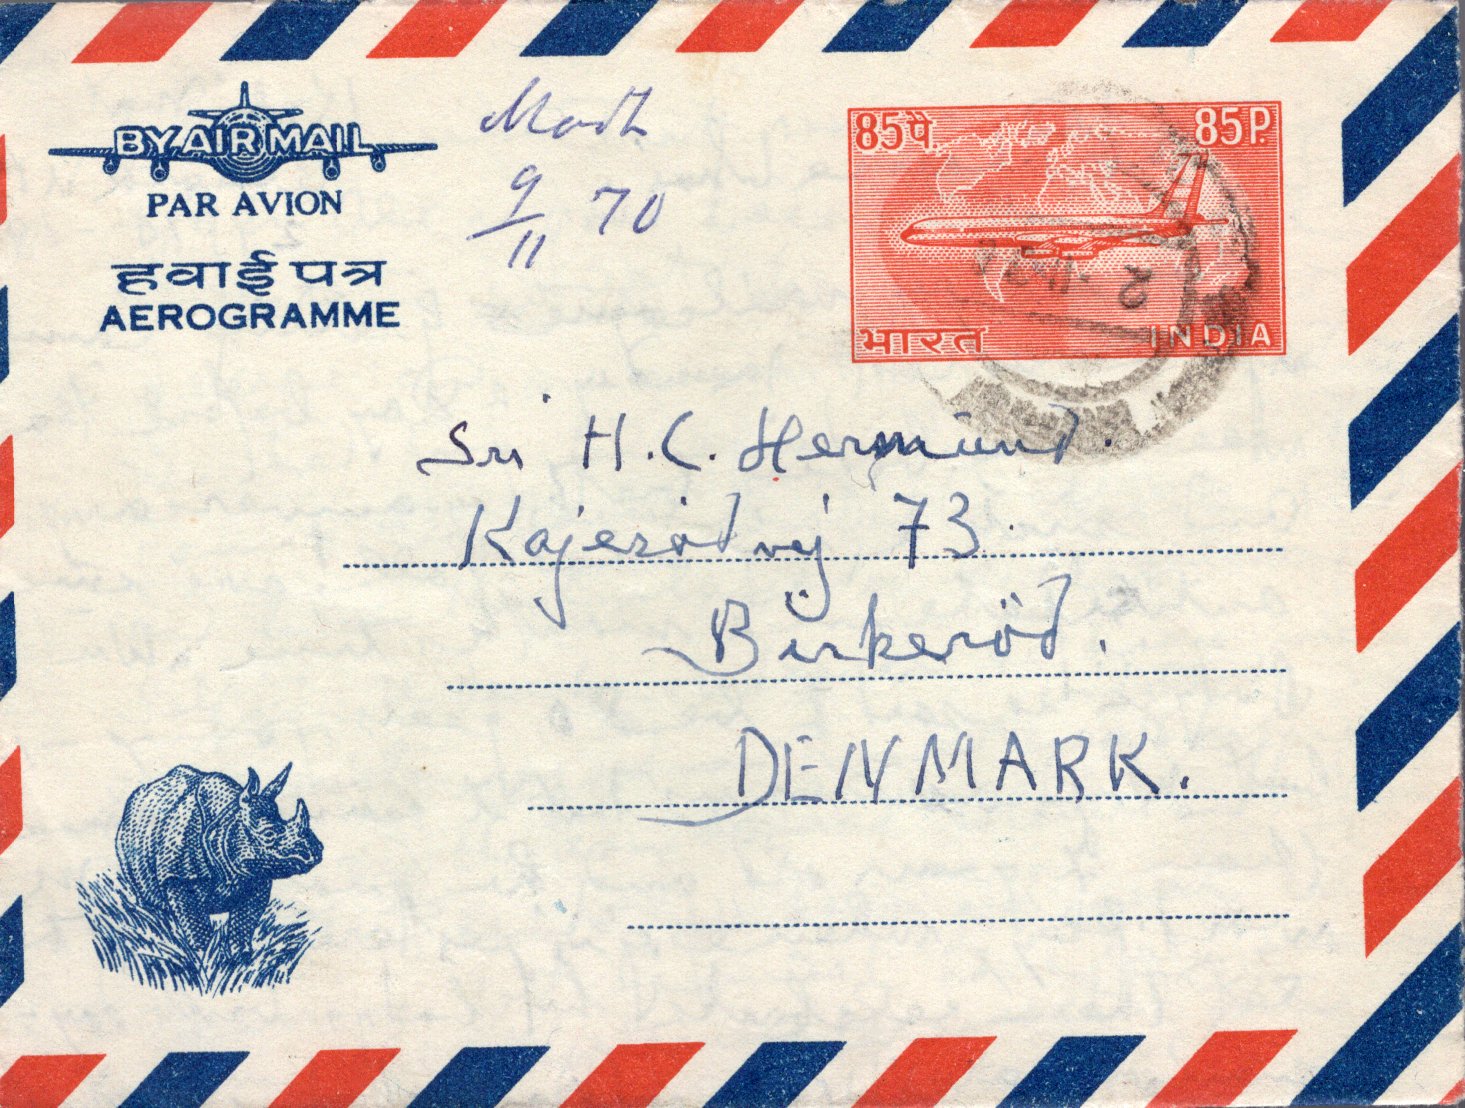 BY AIR MAIL
PAR AVION
हवाई पत्र
AEROGRAMME
Modt.
9/11 70
85 पै. 85 P.
भारत INDIA
2 -11-
Sri H. C. Hermund.
Kajerödvej 73.
Birkeröd.
DENMARK.